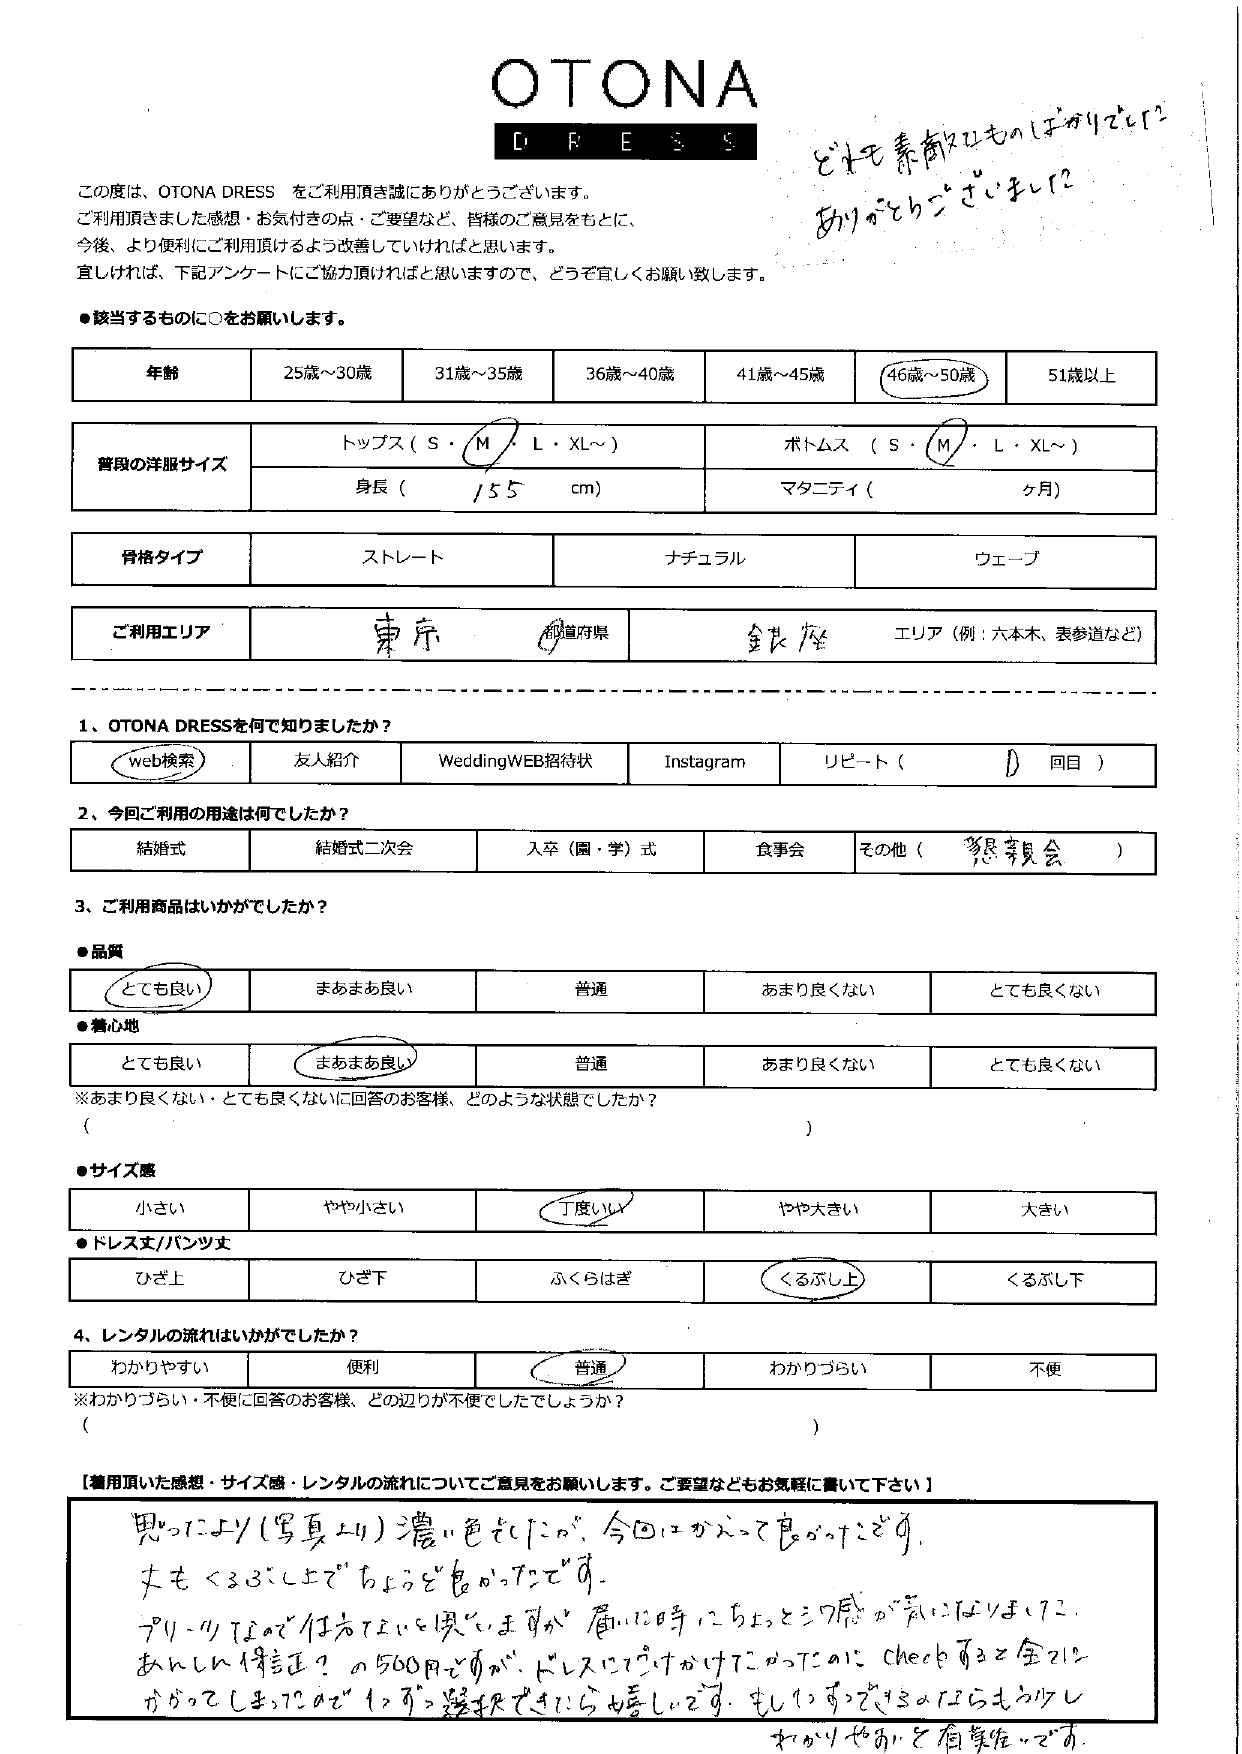 OTONA
DRESS
どれも素敵なものばかりでした
ありがとうございました
この度は、OTONA DRESS をご利用頂き誠にありがとうございます。
ご利用頂きました感想・お気付きの点・ご要望など、皆様のご意見をもとに、
今後、より便利にご利用頂けるよう改善していければと思います。
宜しければ、下記アンケートにご協力頂ければと思いますので、どうぞ宜しくお願い致します。
●該当するものに○をお願いします。
年齢 25歳～30歳 31歳～35歳 36歳～40歳 41歳～45歳 46歳～50歳 51歳以上
普段の洋服サイズ トップス ( S ・ M ・ L ・ XL～ ) ボトムス ( S ・ M ・ L ・ XL～ )
身長 ( 155 cm) マタニティ ( ヶ月)
骨格タイプ ストレート ナチュラル ウェーブ
ご利用エリア 東京 都道府県 銀座 エリア（例：六本木、表参道など）
1、OTONA DRESSを何で知りましたか？
web検索 友人紹介 WeddingWEB招待状 Instagram リピート ( 回目 )
2、今回ご利用の用途は何でしたか？
結婚式 結婚式二次会 入卒（園・学）式 食事会 その他 ( 懇親会 )
3、ご利用商品はいかがでしたか？
●品質
とても良い まあまあ良い 普通 あまり良くない とても良くない
●着心地
とても良い まあまあ良い 普通 あまり良くない とても良くない
※あまり良くない・とても良くないに回答のお客様、どのような状態でしたか？
( )
●サイズ感
小さい やや小さい 丁度いい やや大きい 大きい
●ドレス丈/パンツ丈
ひざ上 ひざ下 ふくらはぎ くるぶし上 くるぶし下
4、レンタルの流れはいかがでしたか？
わかりやすい 便利 普通 わかりづらい 不便
※わかりづらい・不便に回答のお客様、どの辺りが不便でしたでしょうか？
( )
【着用頂いた感想・サイズ感・レンタルの流れについてご意見をお願いします。ご要望などもお気軽に書いて下さい】
思ったより(写真より)濃い色でしたが、今回はかえって良かったです。
丈もくるぶし上でちょうど良かったです。
プリーツなので仕方ないと思いますが届いた時にちょっとシワ感が気になりました。
あんしん保証？の500円ですが、ドレスにだけかけたかったのにcheckすると全てに
かかってしまったので1つずつ選択できたら嬉しいです。もし1つずつできるのならもう少し
わかりやすいと有難いです。